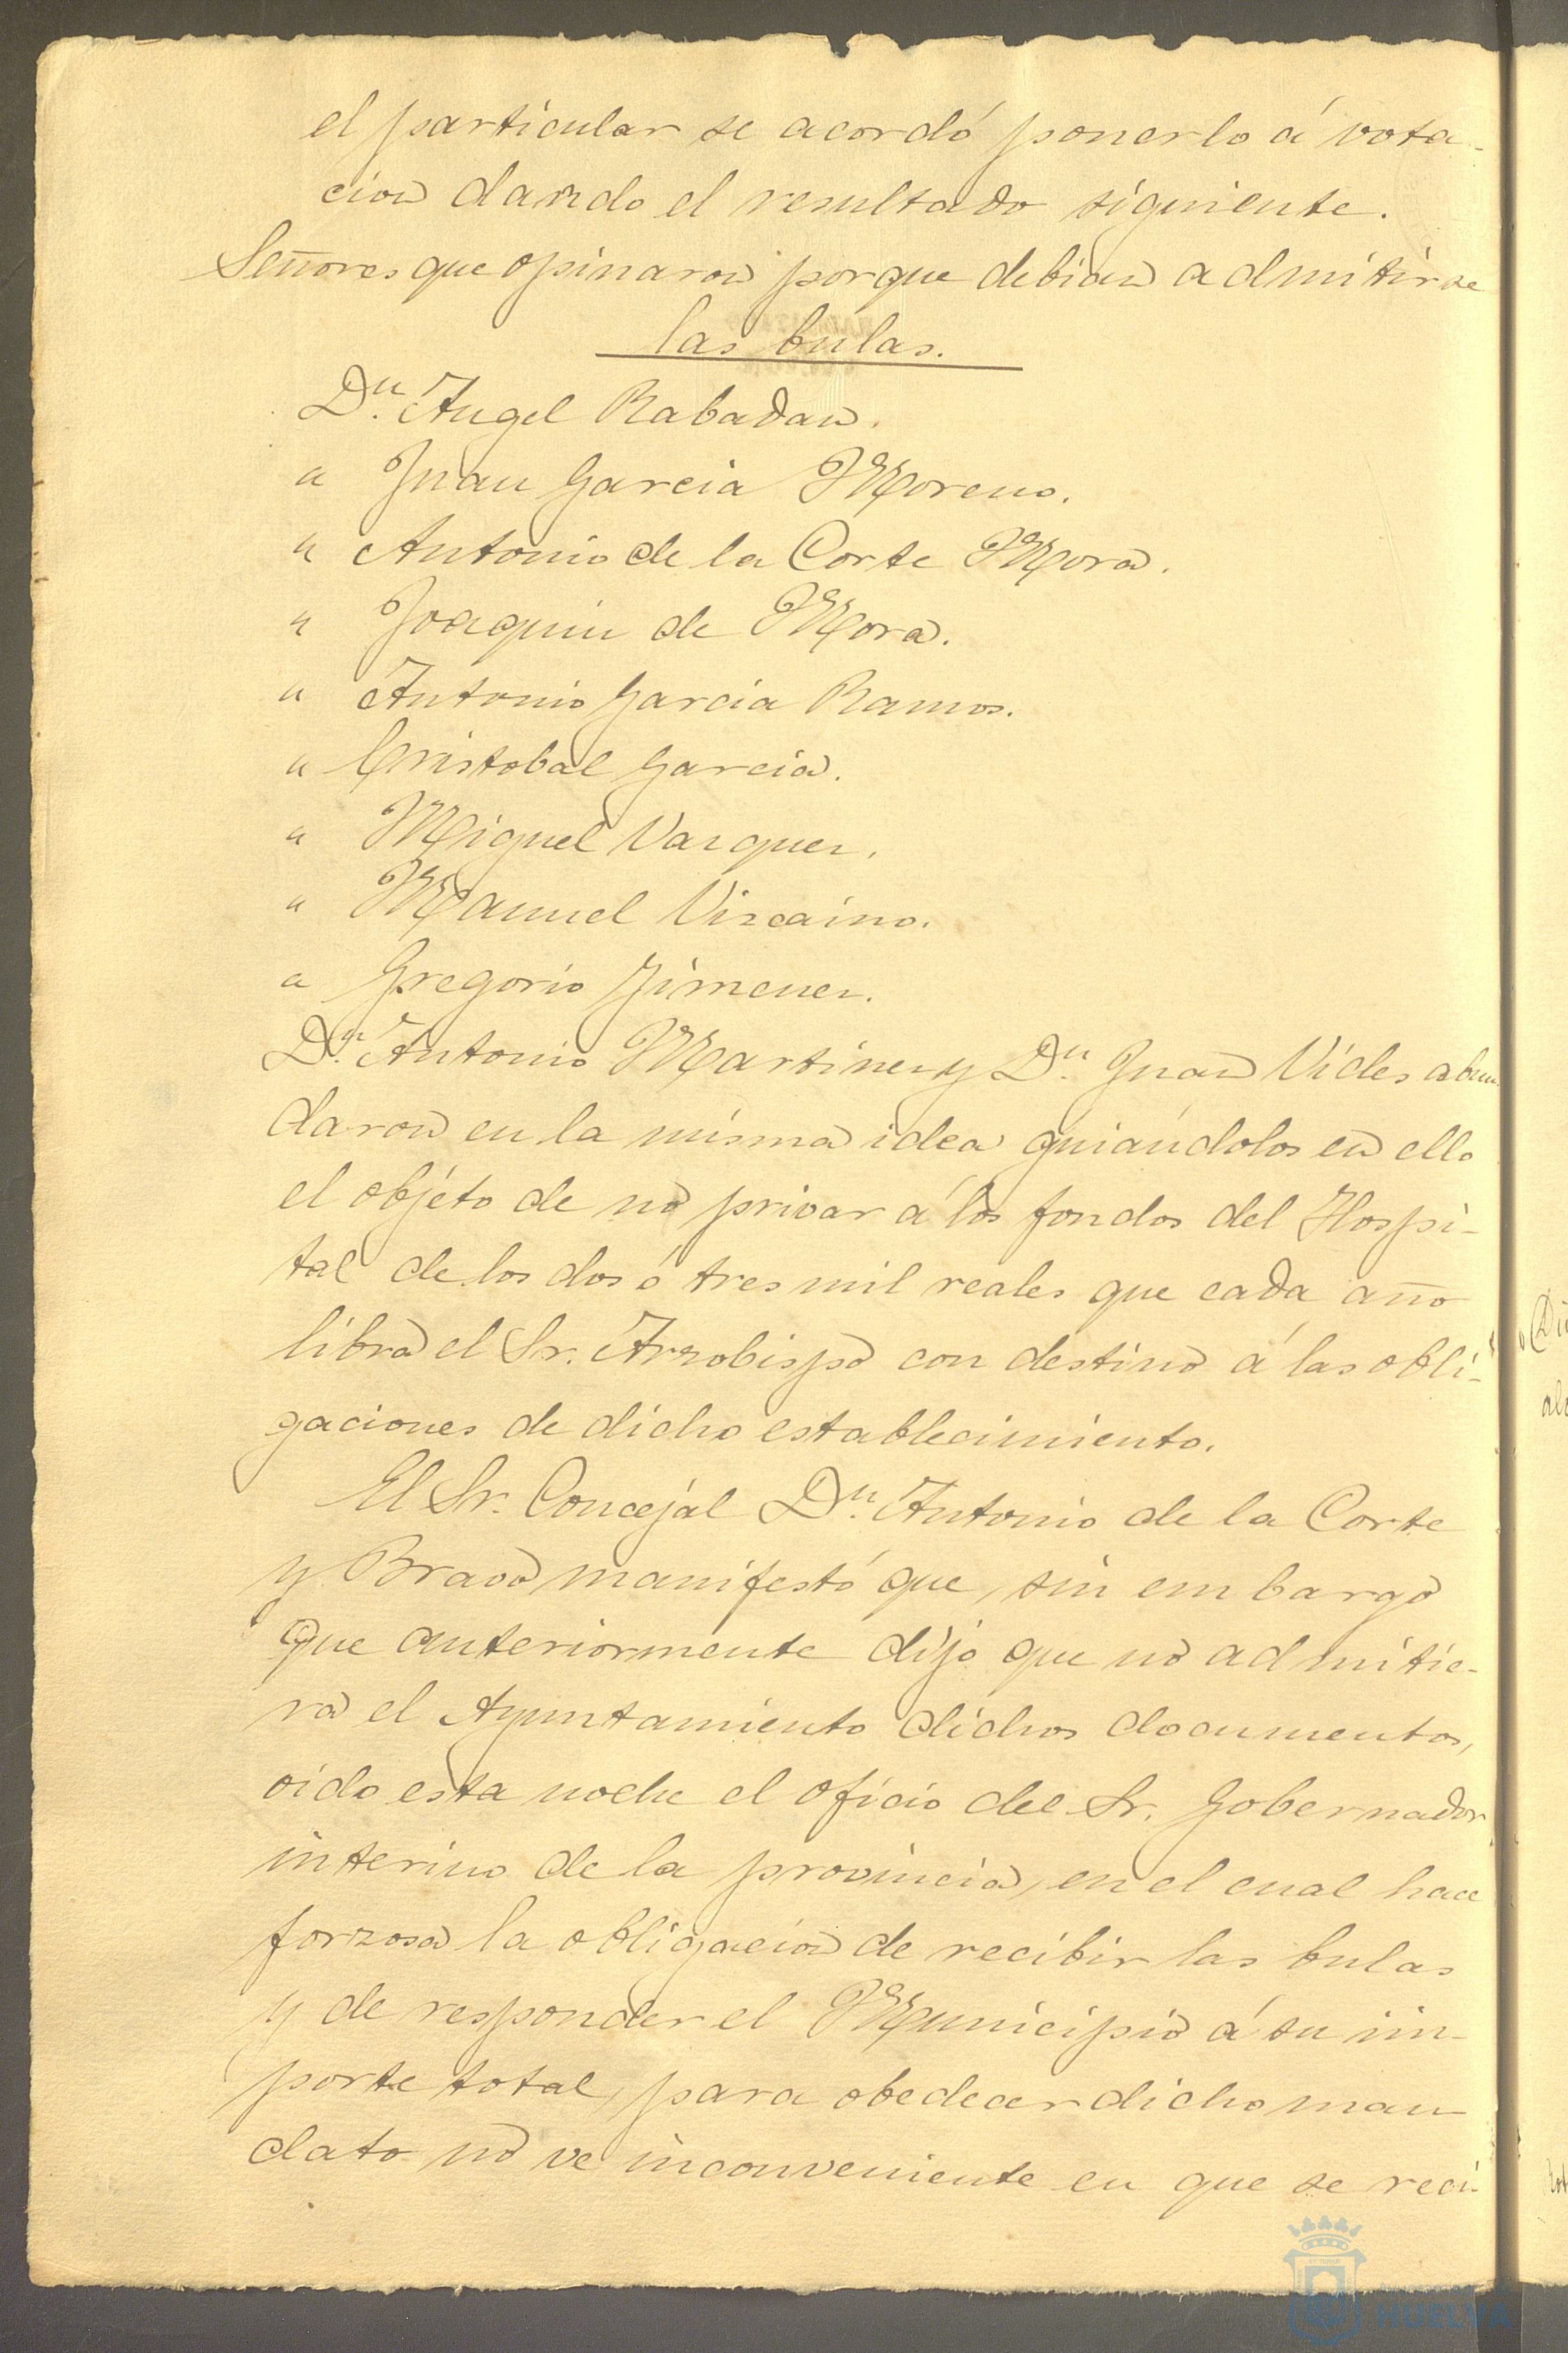 el particular se acordó ponerlo á vota-
cion dando el resultado siguiente.
Señores que opinaron porque debian admitirse
las bulas.
Dn. Angel Rabadan.
" Juan Garcia Moreno.
" Antonio de la Corte Mora.
" Joaquin de Mora.
" Antonio Garcia Ramos.
" Cristobal Garcia.
" Miguel Vazquez.
" Manuel Vizcaino.
" Gregorio Jimenez.
Dn. Antonio Martinez y Dn. Juan Vides abun-
daron en la misma idea guiándolos en ello
el objéto de no privar á los fondos del Hospi-
tal de los dos ó tres mil reales que cada año
libra el Sr. Arzobispo con destino á las obli-
gaciones de dicho establecimiento.
El Sr. Concejal Dn. Antonio de la Corte
y Bravo manifestó que, sin embargo
que anteriormente dijo que no admitie-
ra el Ayuntamiento dichos documentos,
oido esta noche el oficio del Sr. Gobernador
interino de la provincia, en el cual hace
forzosa la obligacion de recibir las bulas
y de responder el Municipio á su im-
porte total, para obedecer dicho man-
dato no ve inconveniente en que se reci-
HUELVA